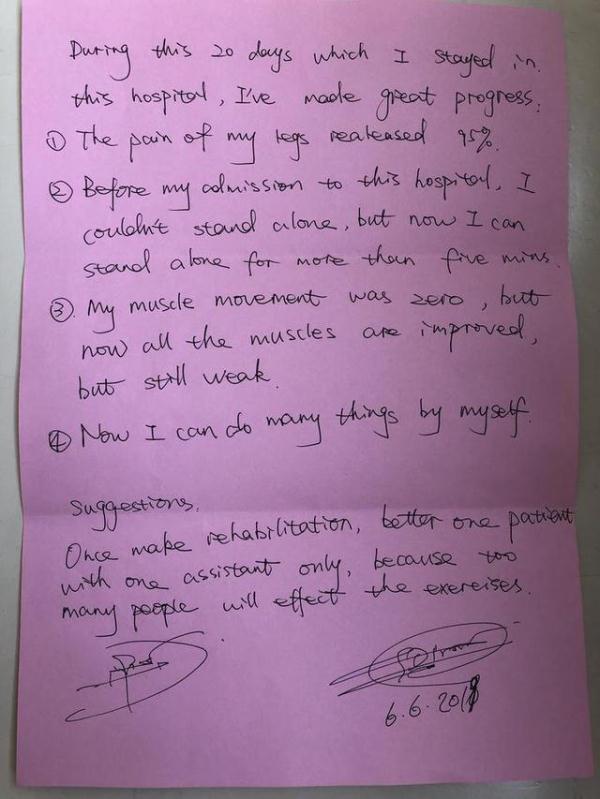 During this 20 days which I stayed in
this hospital, I've made great progress.
① The pain of my legs realeased 95%.
② Before my admission to this hospital, I
couldn't stand alone, but now I can
stand alone for more than five mins.
③. My muscle movement was zero, but
now all the muscles are improved,
but still weak.
④ Now I can do many things by myself.
Suggestions.
Once make rehabilitation, better one patient
with one assistant only, because too
many people will effect the exereises.
6.6.2018